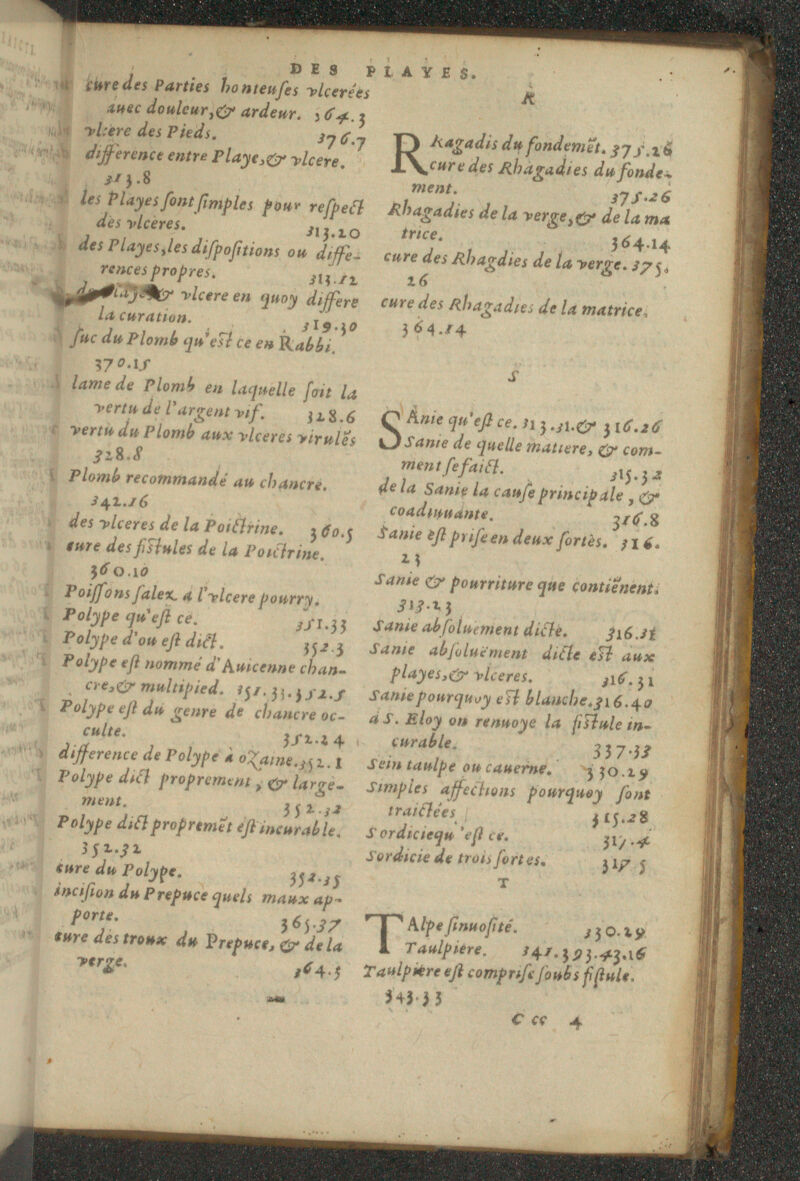 DES PLAYES.
cure des Parties honteuses vlcerées
auec douleur,& ardeur. 364.3
vlcere des Pieds. 376.7
difference entre Playe,& vlcere.
313.8
les Playes sont simples pour respect
des vlceres. 313.10
des Playes,les dispositions ou diffe-
rences propres. 313.12
vlcere en quoy differe
la curation. 319.30
suc du Plomb qu'est ce en Rabbi.
370.15
lame de Plomb en laquelle soit la
vertu de l'argent vif. 328.6
vertu du Plomb aux vlceres virulēs
328.8
Plomb recommandé au chancre.
342.16
des vlceres de la Poictrine. 360.5
cure des fistules de la Poictrine.
360.10
Poissons salez à l'vlcere pourry.
Polype qu'est ce. 351.33
Polype d'ou est dict. 352.3
Polype est nommé d'Auicenne chan-
cre,& multipied. 351.33.352.5
Polype est du genre de chancre oc-
culte. 352.24
difference de Polype à oZaine.352.1
Polype dict proprement, & large-
ment. 352.32
Polype dict propremēt est incurable.
352.32
cure du Polype. 352.35
incision du Prepuce quels maux ap-
porte. 365.37
cure des troux du Prepuce, & de la
verge. 364.5
R
RHagadis du fondemēt. 375.26
cure des Rhagadies du fonde-
ment. 375.26
Rhagadies de la verge,& de la ma
trice. 364.14
cure des Rhagdies de la verge. 375.
26
cure des Rhagadies de la matrice.
364.14
S
SAnie qu'est ce. 313.31.& 316.26
Sanie de quelle matiere, & com-
ment se faict. 315.32
de la Sanie la cause principale, &
coadiuuante. 316.8
Sanie est prise en deux sortes. 316.
23
Sanie & pourriture que contiēnent.
313.23
Sanie absoluement dicte. 316.31
Sanie absoluëment dicte est aux
playes,& vlceres. 316.31
Sanie pourquoy est blanche.316.40
à S. Eloy on renuoye la fistule in-
curable. 337.33
Sein taulpe ou cauerne. 330.29
Simples affections pourquoy sont
traictées 315.28
Sordicie qu'est ce. 317.4
Sordicie de trois sortes. 317 5
T
TAlpe sinuosité. 330.29
Taulpiere. 341.393.43.16
Taulpiere est comprise soubs fistule.
343.33
C cc 4